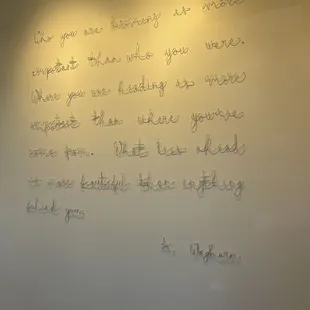 Who you are becoming is more
important than who you were.
Where you are heading is more
important than where you've
come from. What lies ahead
is more beautiful than anything
behind you.